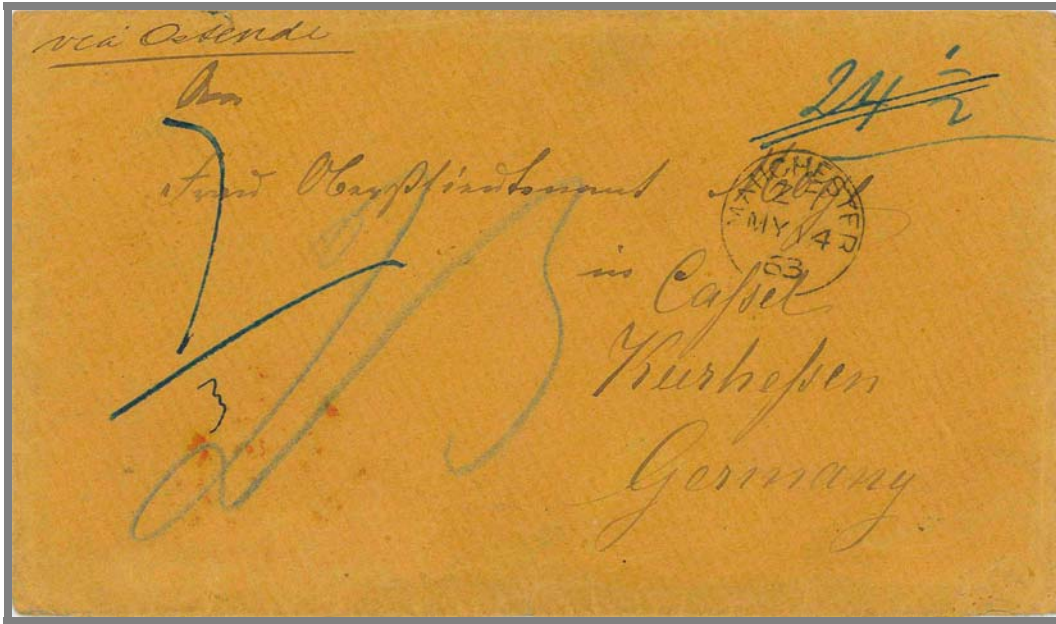 via Ostende
24 1/2
An
Frau Oberstlieutenant
MANCHESTER
MY 14
63
in
Caſsel
Kurheſsen
Germany
3